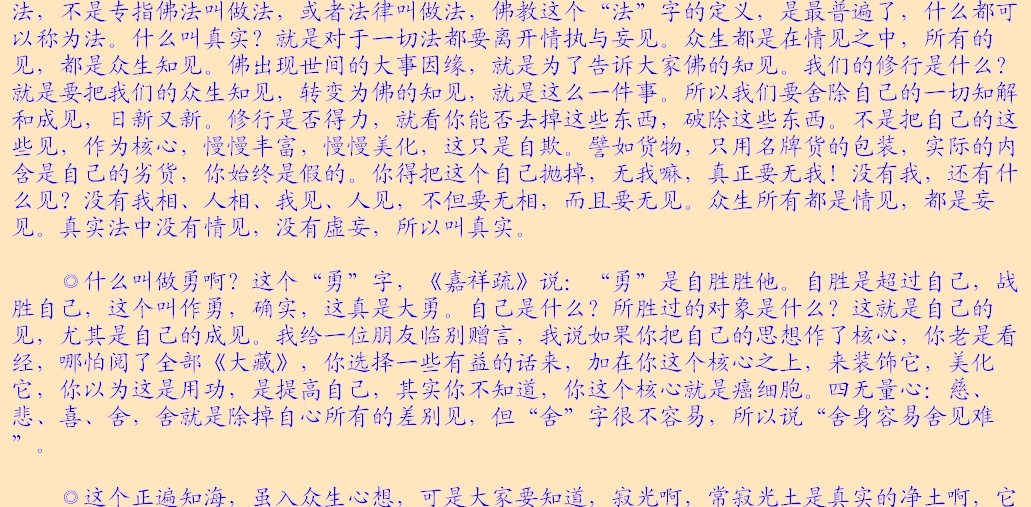 法，不是专指佛法叫做法，或者法律叫做法，佛教这个“法”字的定义，是最普遍了，什么都可
以称为法。什么叫真实？就是对于一切法都要离开情执与妄见。众生都是在情见之中，所有的
见，都是众生知见。佛出现世间的大事因缘，就是为了告诉大家佛的知见。我们的修行是什么？
就是要把我们的众生知见，转变为佛的知见，就是这么一件事。所以我们要舍除自己的一切知解
和成见，日新又新。修行是否得力，就看你能否去掉这些东西，破除这些东西。不是把自己的这
些见，作为核心，慢慢丰富，慢慢美化，这只是自欺。譬如货物，只用名牌货的包装，实际的内
含是自己的劣货，你始终是假的。你得把这个自己抛掉，无我嘛，真正要无我！没有我，还有什
么见？没有我相、人相、我见、人见，不但要无相，而且要无见。众生所有都是情见，都是妄
见。真实法中没有情见，没有虚妄，所以叫真实。
◎什么叫做勇啊？这个“勇”字，《嘉祥疏》说：“勇”是自胜胜他。自胜是超过自己，战
胜自己，这个叫作勇，确实，这真是大勇。自己是什么？所胜过的对象是什么？这就是自己的
见，尤其是自己的成见。我给一位朋友临别赠言，我说如果你把自己的思想作了核心，你老是看
经，哪怕阅了全部《大藏》，你选择一些有益的话来，加在你这个核心之上，来装饰它，美化
它，你以为这是用功，是提高自己，其实你不知道，你这个核心就是癌细胞。四无量心：慈、
悲、喜、舍，舍就是除掉自心所有的差别见，但“舍”字很不容易，所以说“舍身容易舍见难
”。
◎这个正遍知海，虽入众生心想，可是大家要知道，寂光啊，常寂光土是真实的净土啊，它